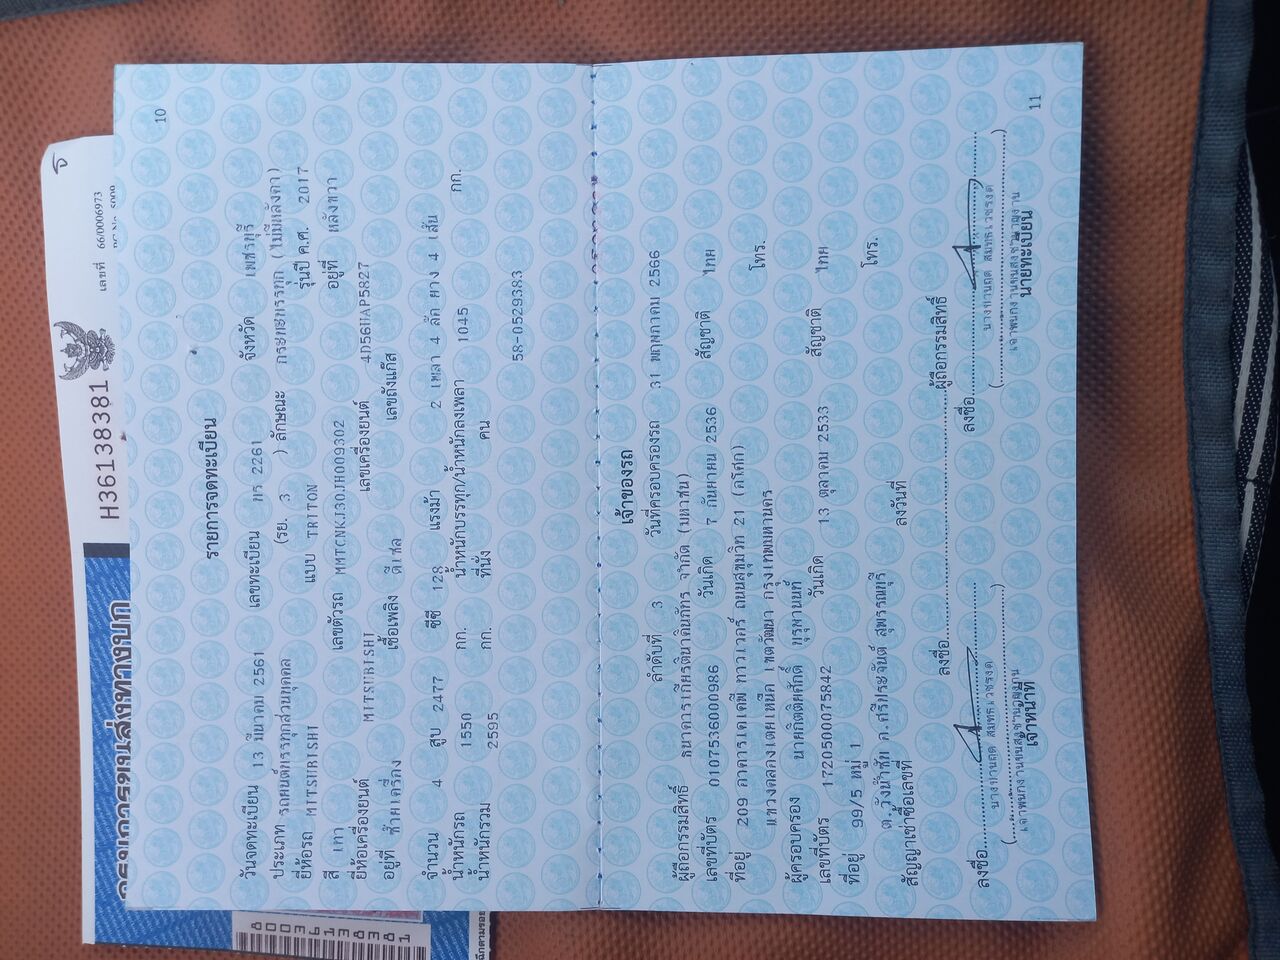 กรมการขนส่งทางบก
H36138381
เลขที่ 66/0006973
10
รายการจดทะเบียน
วันจดทะเบียน 13 มีนาคม 2561 เลขทะเบียน 2261 จังหวัด เพชรบุรี
ประเภท รถยนต์บรรทุกส่วนบุคคล (รย. 3 ) ลักษณะ กระบะบรรทุก (ไม่มีหลังคา)
ยี่ห้อรถ MITSUBISHI แบบ TRITON รุ่นปี ค.ศ. 2017
สี เทา เลขตัวรถ MMTCNKJ30JH009302 อยู่ที่ หลังขวา
ยี่ห้อเครื่องยนต์ MITSUBISHI เลขเครื่องยนต์ 4D56UAP5827
อยู่ที่ ซ้ายเครื่อง เชื้อเพลิง ดีเซล เลขถังแก๊ส
จำนวน 4 สูบ 2477 ซีซี 128 แรงม้า 2 เพลา 4 ล้อ ยาง 4 เส้น
น้ำหนักรถ 1550 กก. น้ำหนักบรรทุก/น้ำหนักลงเพลา 1045 กก.
น้ำหนักรวม 2595 กก. ที่นั่ง คน
58-0529383
เจ้าของรถ
ลำดับที่ 3 วันที่ครอบครองรถ 31 พฤษภาคม 2566
ผู้ถือกรรมสิทธิ์ ธนาคารเกียรตินาคินภัทร จำกัด (มหาชน)
เลขที่บัตร 0107536000986 วันเกิด 7 กันยายน 2536 สัญชาติ ไทย
ที่อยู่ 209 อาคารเคเคพี ทาวเวอร์ ถนนสุขุมวิท 21 (อโศก)
แขวงคลองเตยเหนือ เขตวัฒนา กรุงเทพมหานคร โทร.
ผู้ครอบครอง นายกิตติยศักดิ์ บุรุพานนท์
เลขที่บัตร 1720500075842 วันเกิด 13 ตุลาคม 2533 สัญชาติ ไทย
ที่อยู่ 99/5 หมู่ 1
ต.วังน้ำซับ อ.ศรีประจันต์ สุพรรณบุรี โทร.
สัญญาเช่าซื้อเลขที่ ลงวันที่
ลงชื่อ ผู้ถือกรรมสิทธิ์
ลงชื่อ ลงชื่อ
เจ้าพนักงานขนส่งชำนาญงาน เจ้าพนักงานขนส่งชำนาญงาน
เจ้าหน้าที่ นายทะเบียน
11